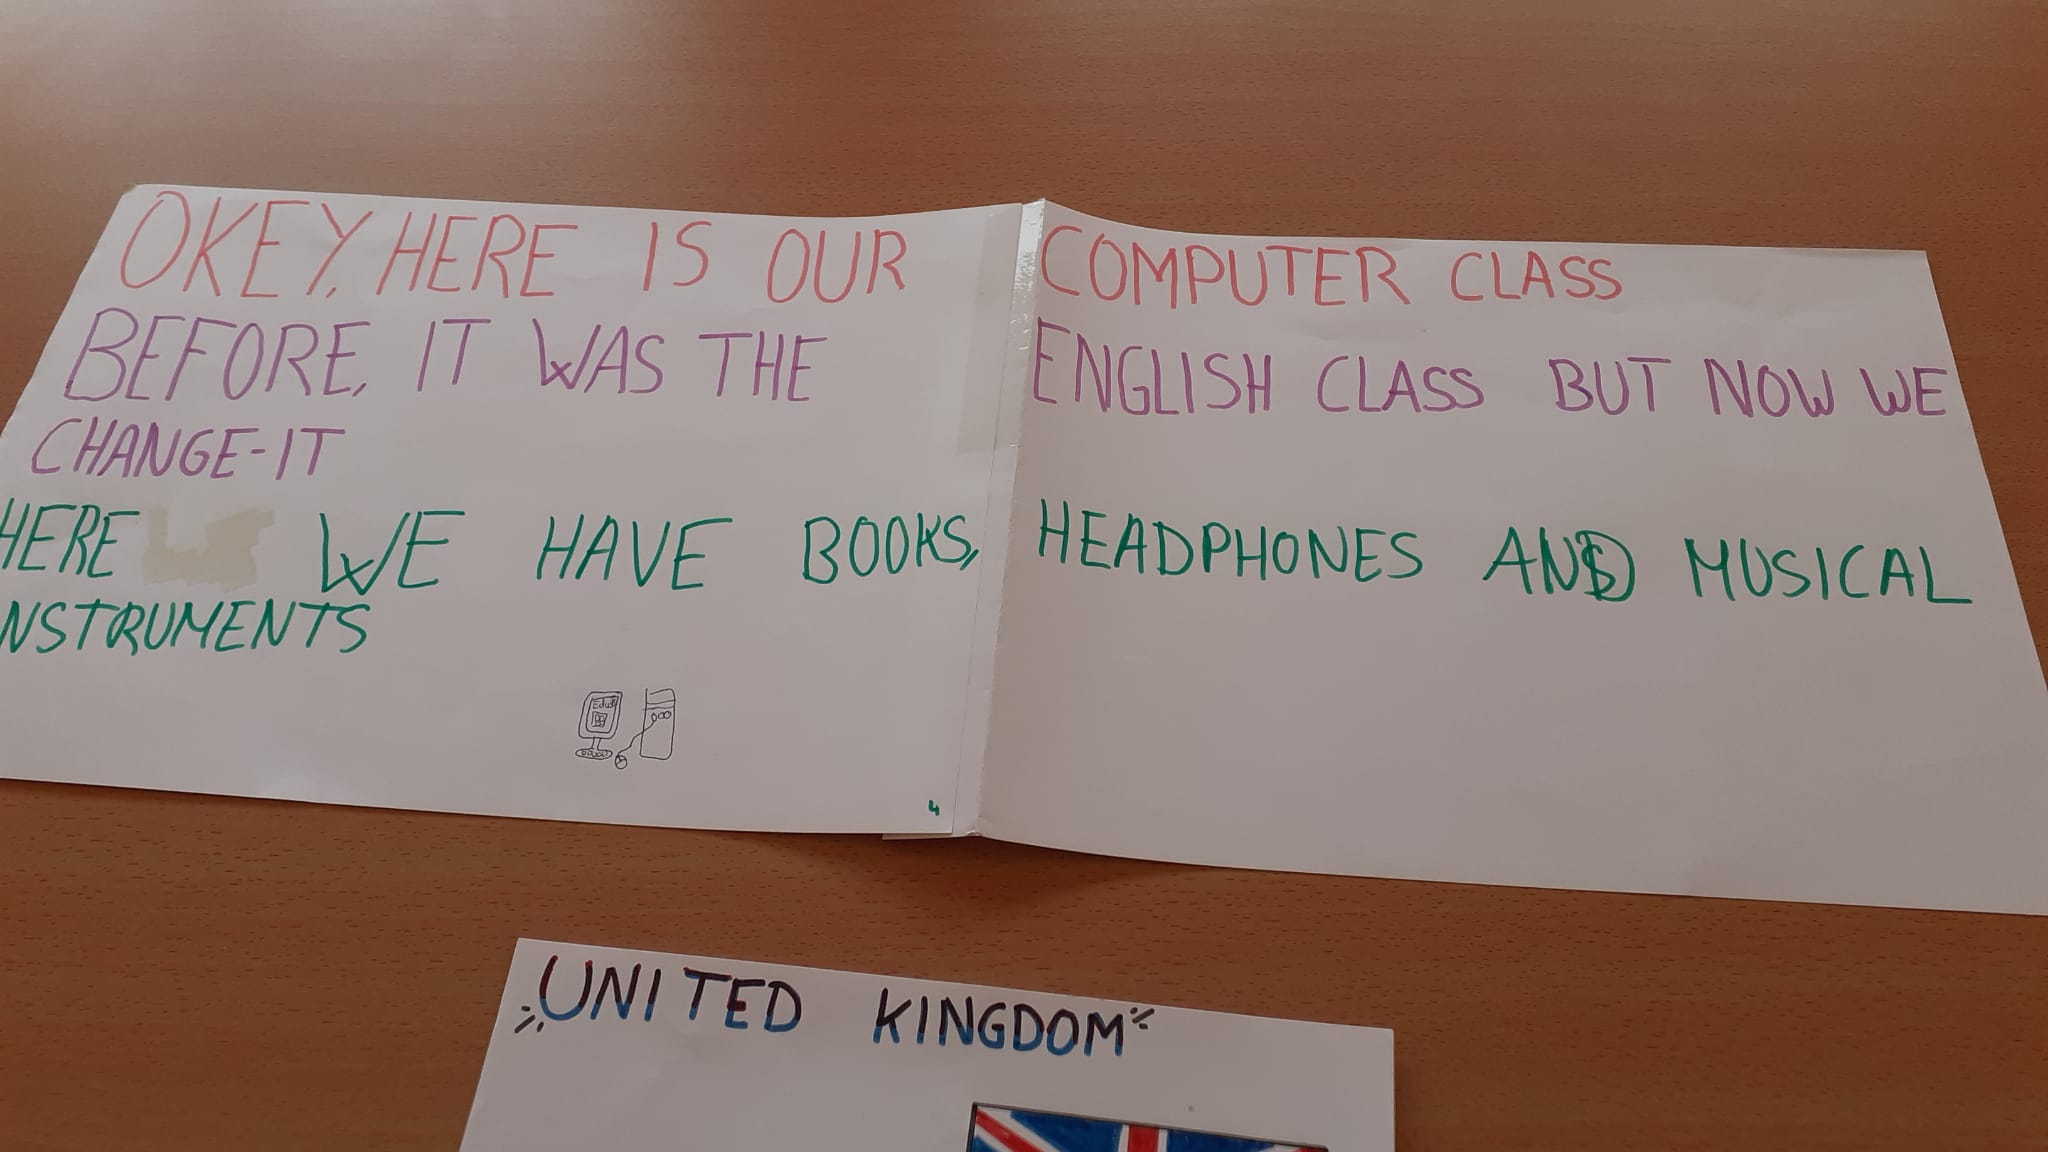 OKEY, HERE IS OUR COMPUTER CLASS
BEFORE, IT WAS THE ENGLISH CLASS BUT NOW WE
CHANGE-IT
HERE WE HAVE BOOKS, HEADPHONES AND MUSICAL
INSTRUMENTS
4
UNITED KINGDOM